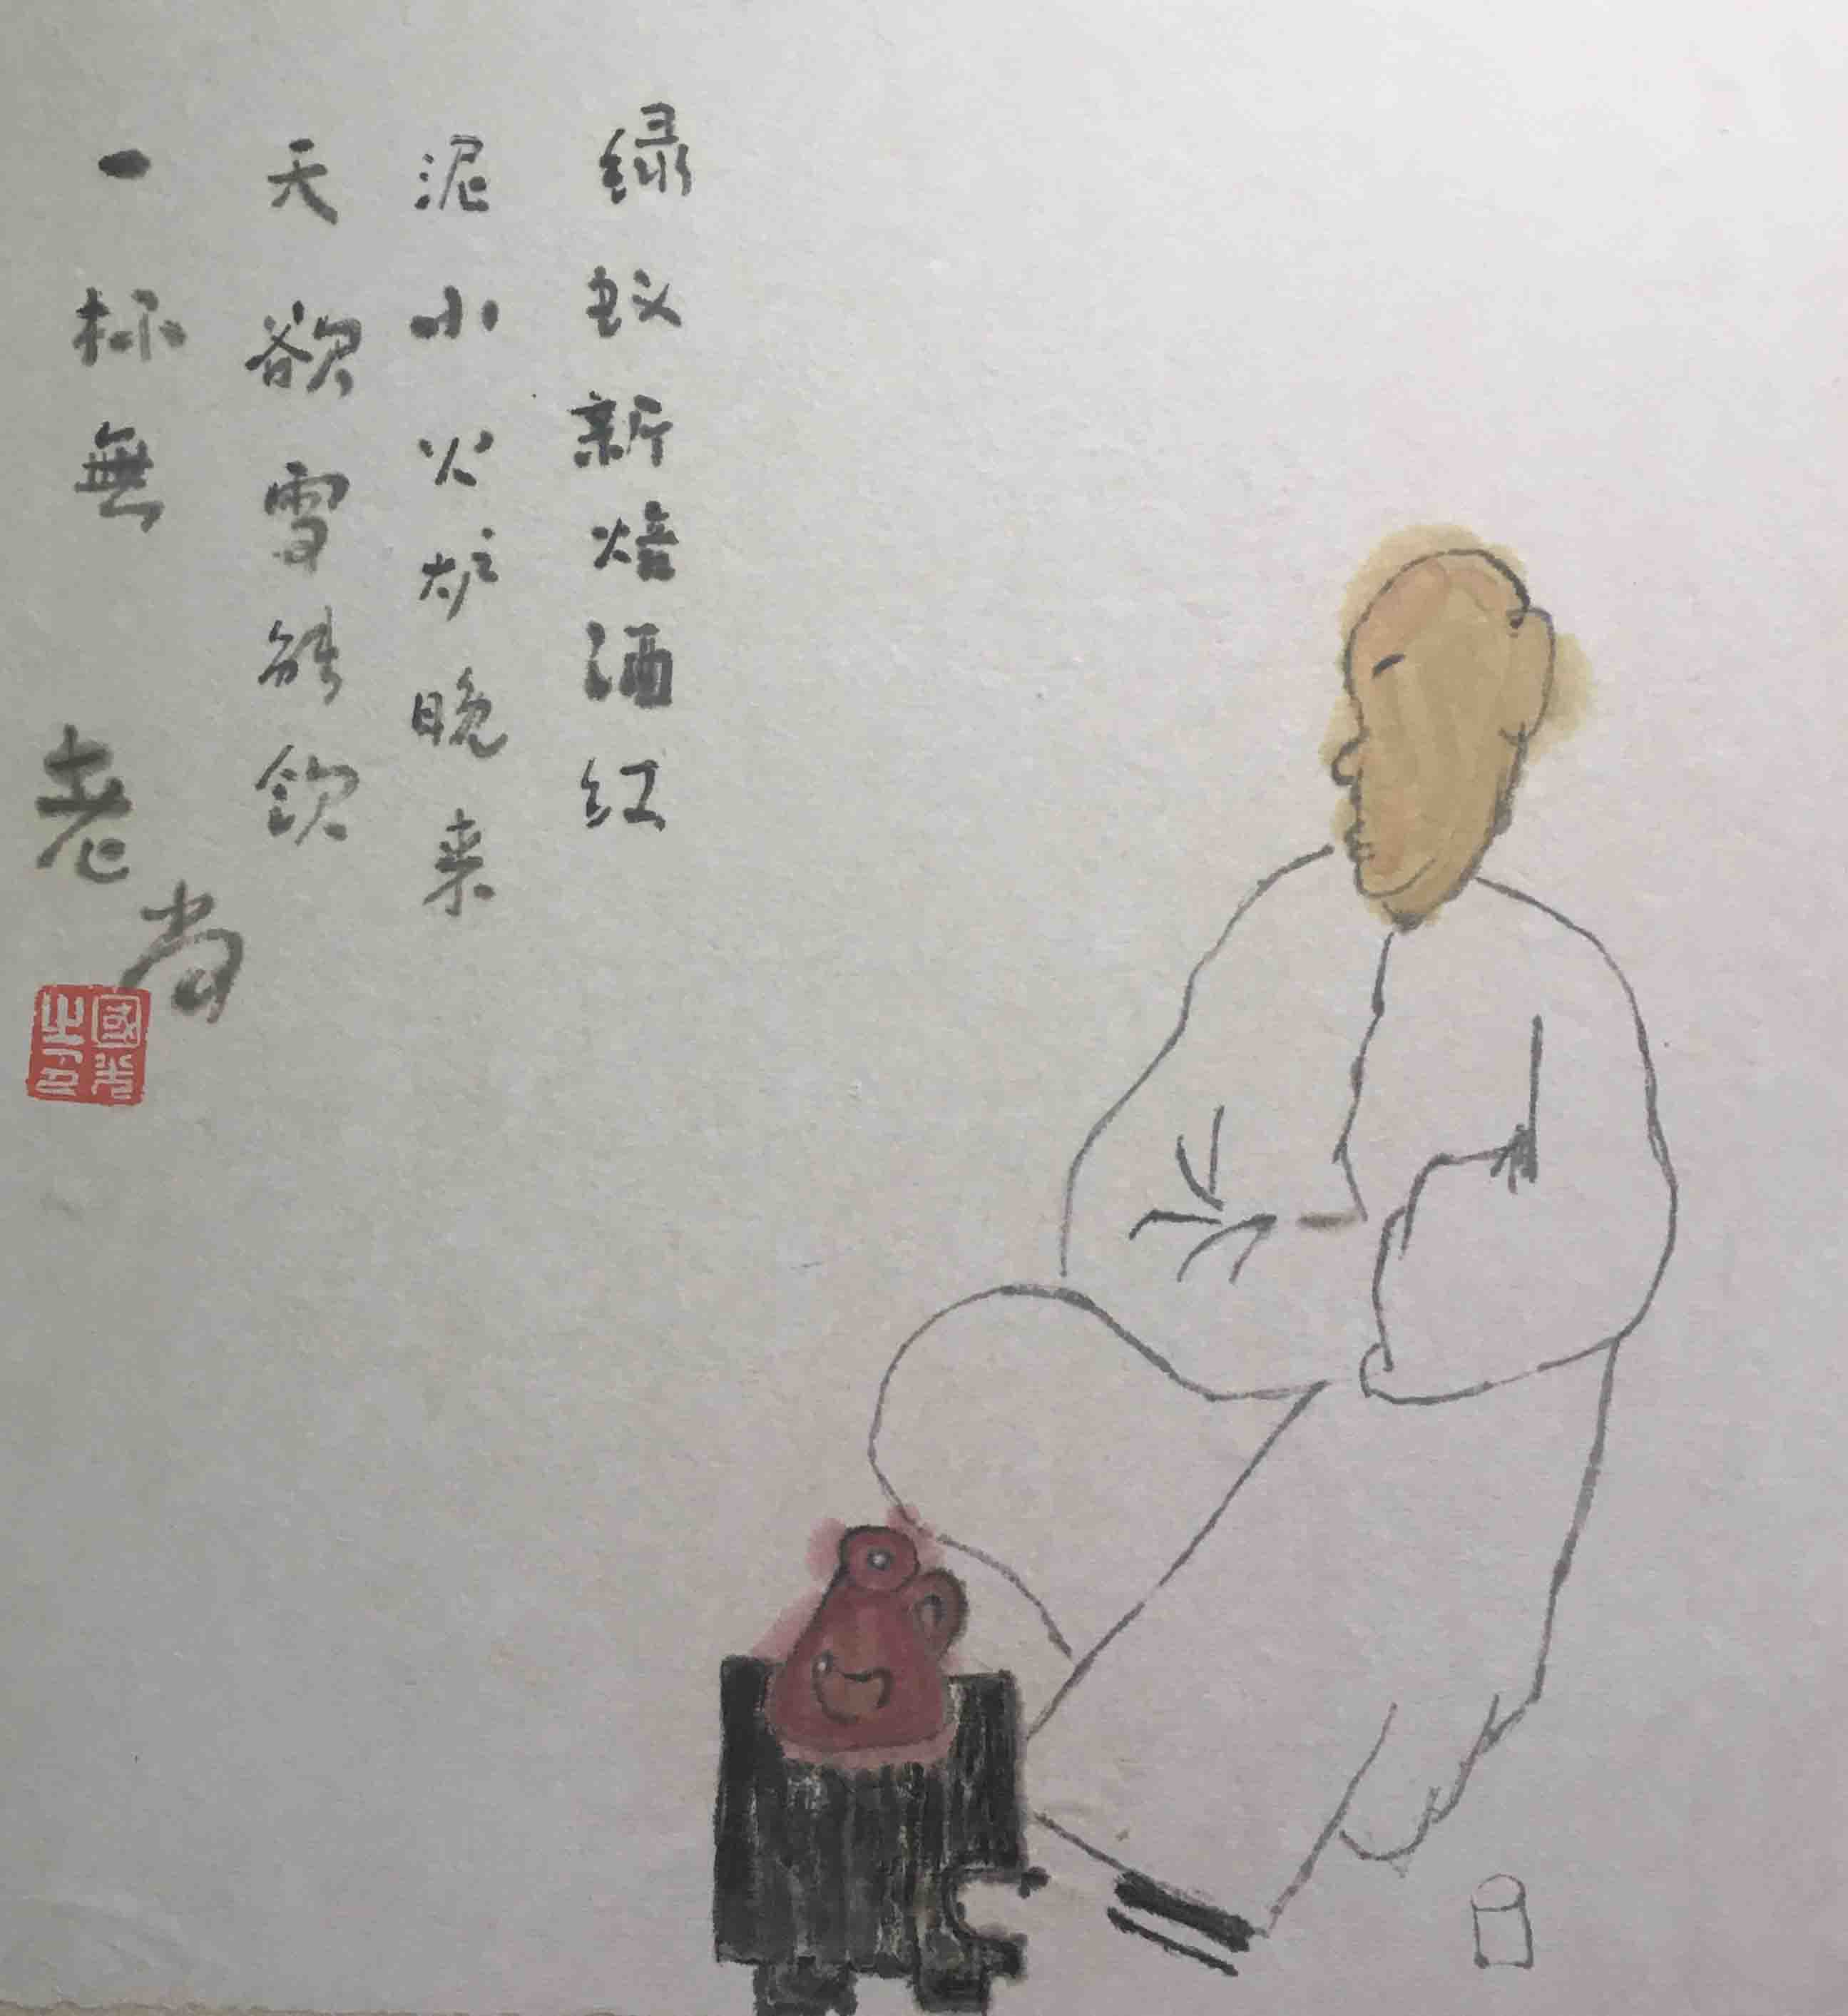 绿蚁新焙酒红
泥小火炉晚来
天欲雪能飲
一杯無
老尚
國光之印